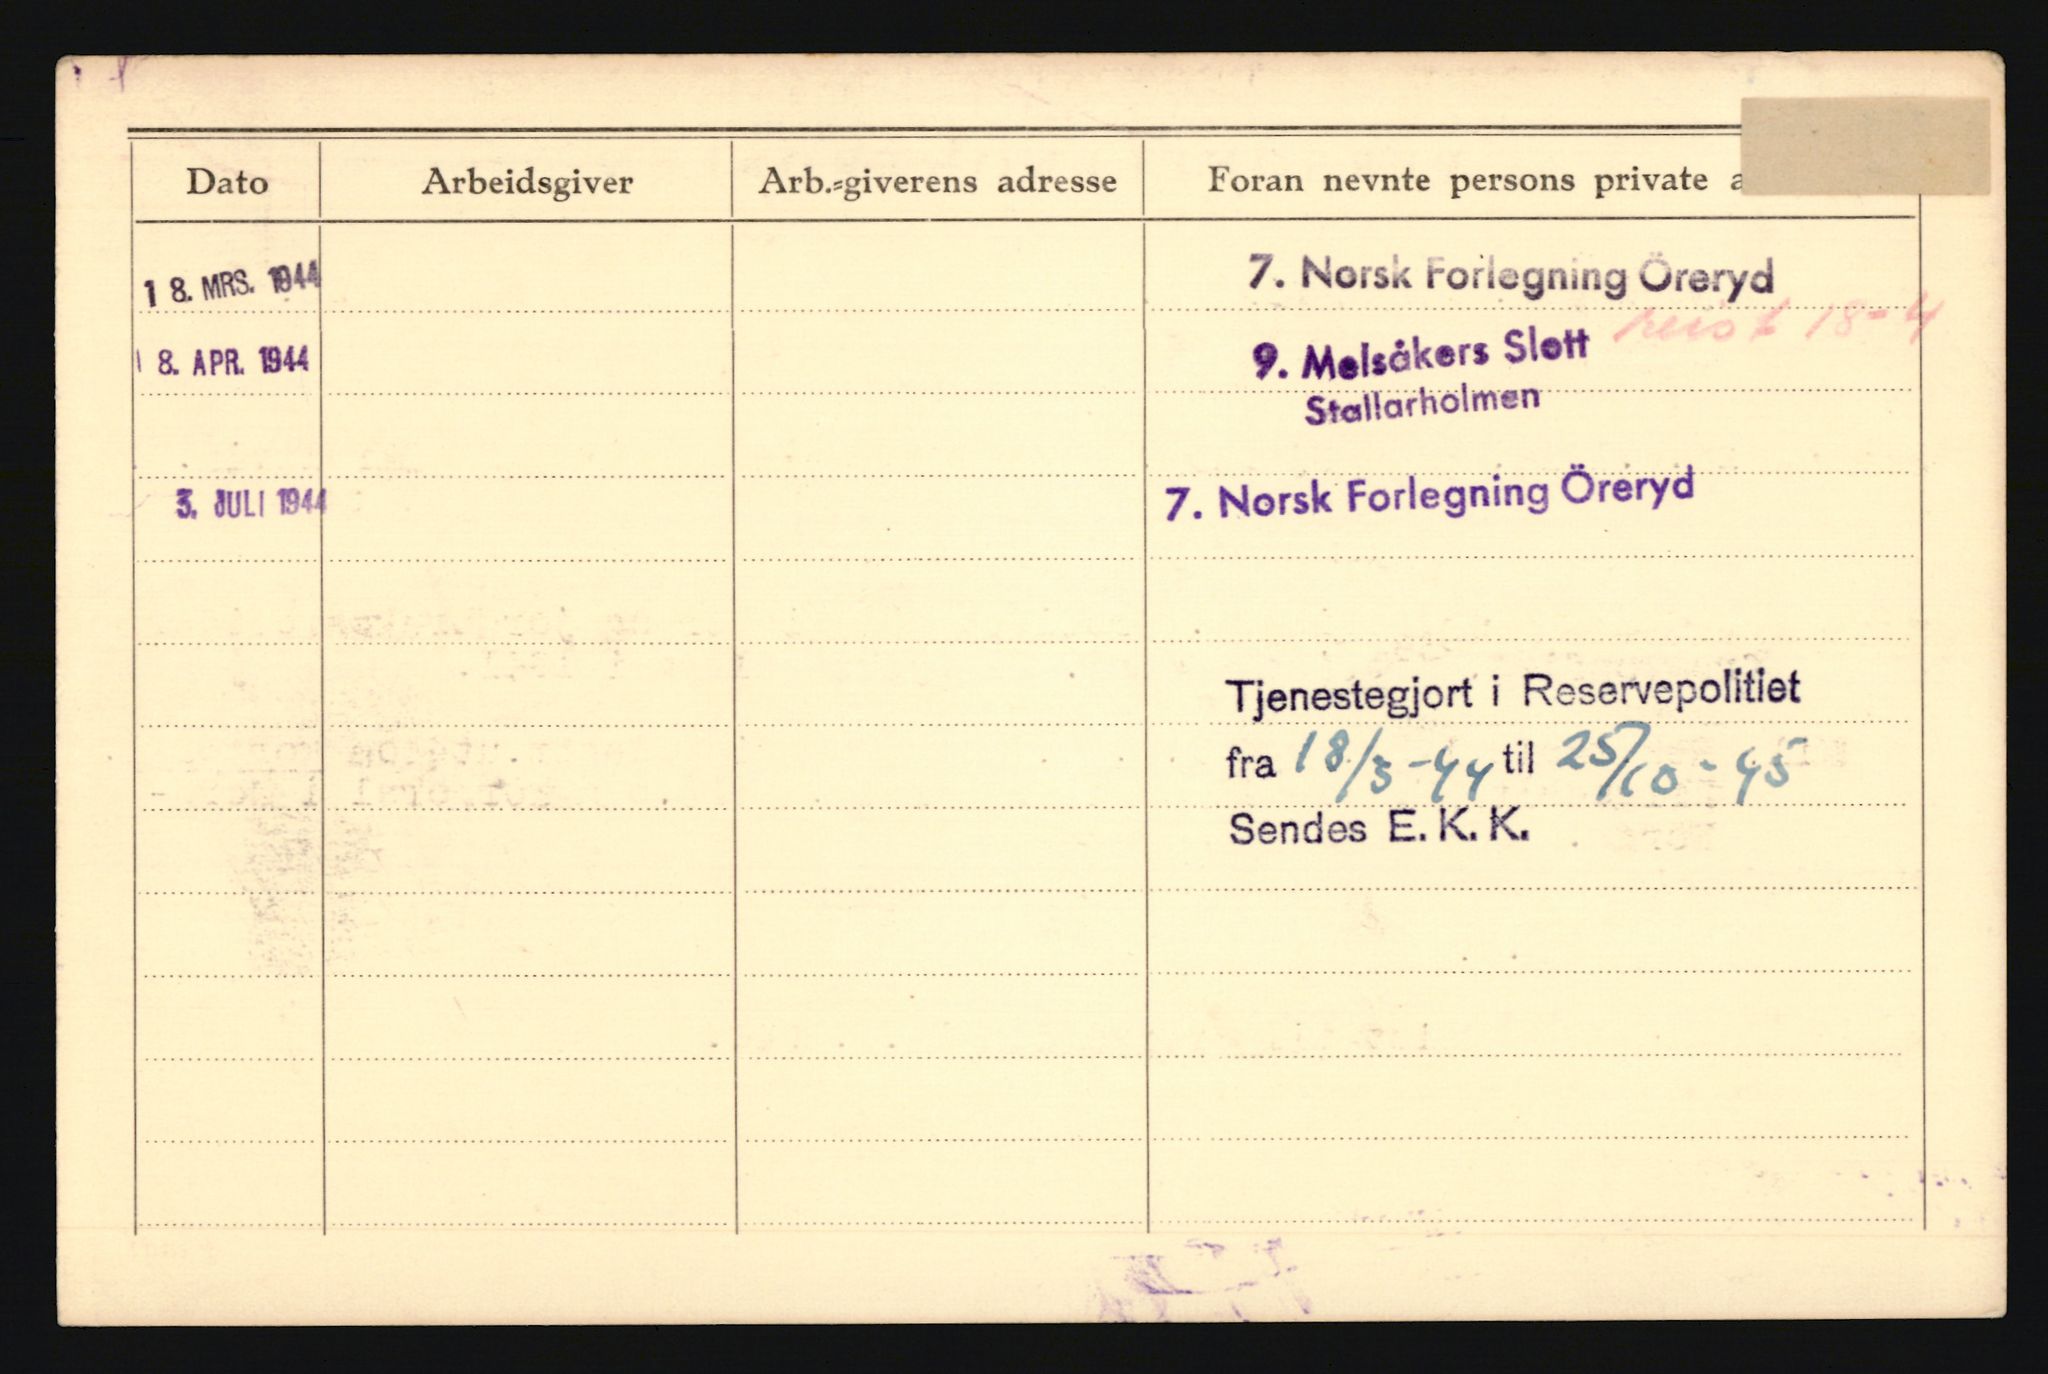 Dato Arbeidsgiver Arb.-giverens adresse Foran nevnte persons private
18. MRS. 1944 7. Norsk Forlegning Öreryd
18. APR. 1944 9. Melsåkers Slott 18-4
Stallarholmen
3. JULI 1944 7. Norsk Forlegning Öreryd
Tjenestegjort i Reservepolitiet
fra 18/3-44 til 25/10-45
Sendes E. K. K.